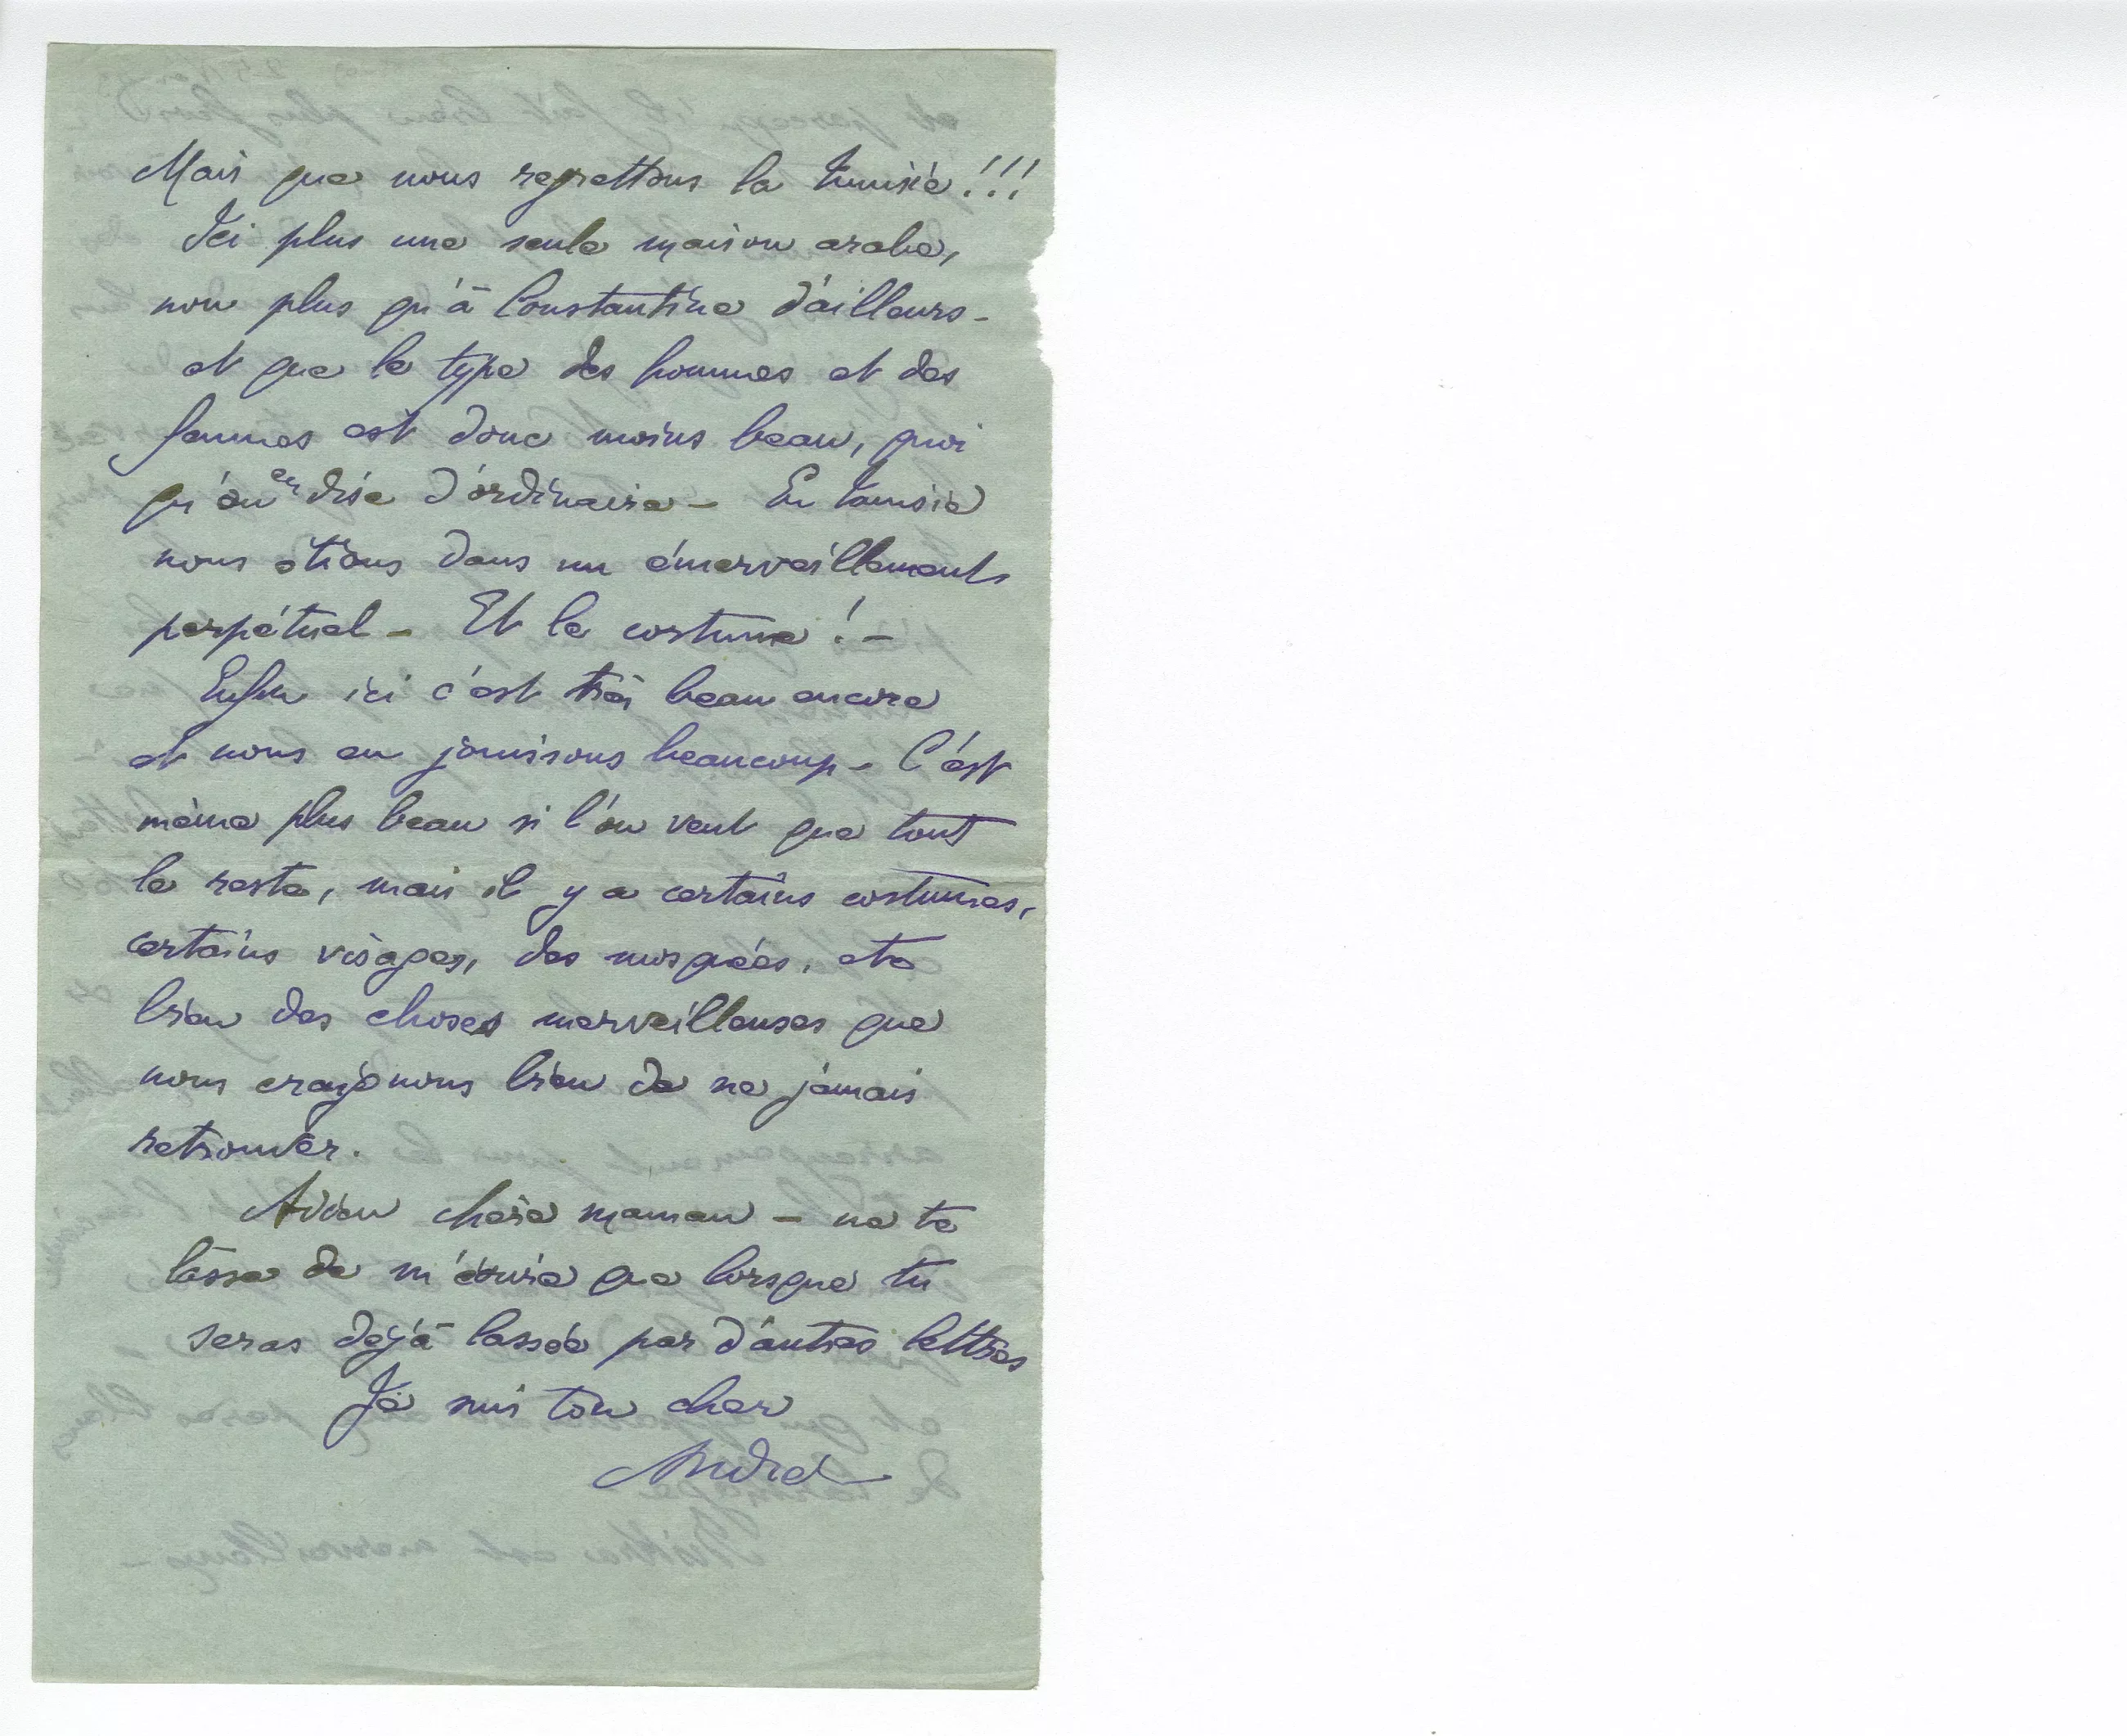 Mais que nous regrettons la Tunisie!!!
Ici plus une seule maison arabe,
non plus qu'à Constantine d'ailleurs -
et que le type des hommes et des
femmes est donc moins beau, quoi
qu'on en dise d'ordinaire - En Tunisie
nous étions dans un émerveillement
perpétuel - Et le costume ! -
Enfin ici c'est très beau encore
et nous en jouissons beaucoup - C'est
même plus beau si l'on veut que tout
le reste, mais il y a certains costumes,
certains visages, des mosquées, etc
bien des choses merveilleuses que
nous craignons bien de ne jamais
retrouver.
Adieu chère maman - ne te
lasse de m'écrire que lorsque tu
seras déjà lassée par d'autres lettres
Je suis ton cher
André